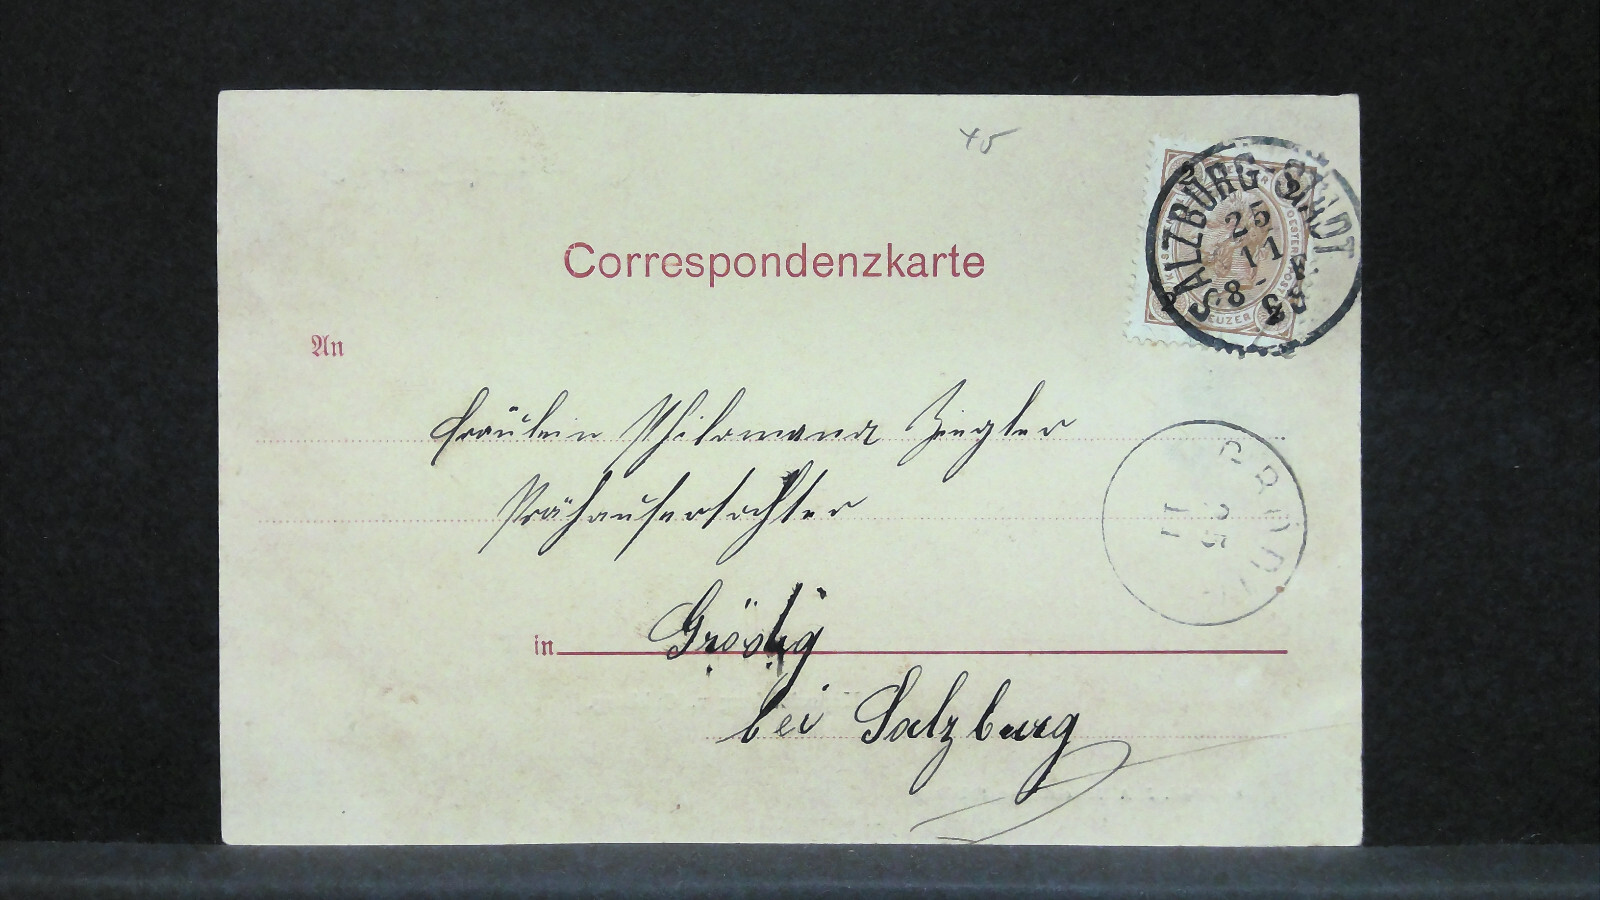 45
Correspondenzkarte
SALZBURG-STADT
25
11
98
An
Fräulein Philomena Ziegler
Prähauſertochter
25
11
in Grödig
bei Salzburg